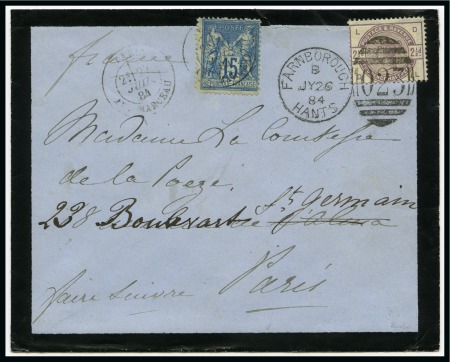 France
15
L D
2½
FARNBOROUGH
B
JY 26
84
HANTS
023
Madame La Comtesse
de la Poëze
238 Boulevart St Germain
Paris
faire suivre